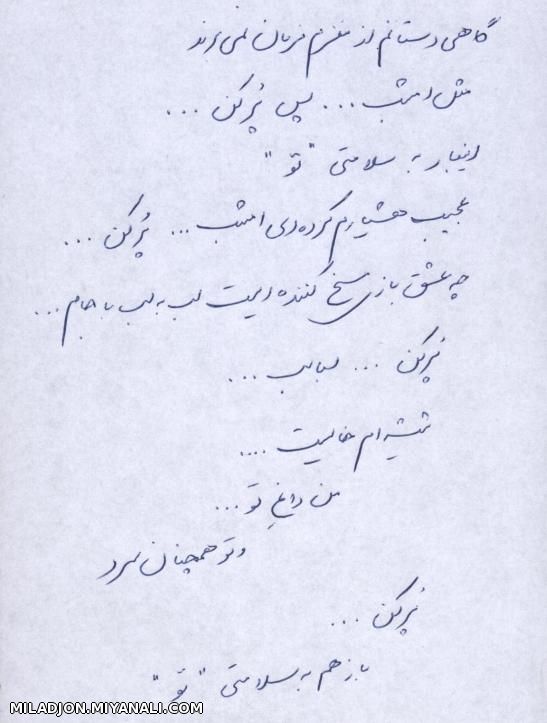 گاهی دستانم از مغزم فرمان نمی برند
مثل امشب ... پس پُر کن ...
اینبار به سلامتی "تو"
عجیب هشیارم کرده‌ای امشب ... پُر کن ...
چه عشق بازی مسخ کننده ایست لب به لب با جام ...
پُر کن ... لبالب ...
شیشه ام خالیست ....
من داغِ تو ...
و تو همچنان سرد
پُر کن ...
باز هم به سلامتی "تو"
MILADJON.MIYANALI.COM